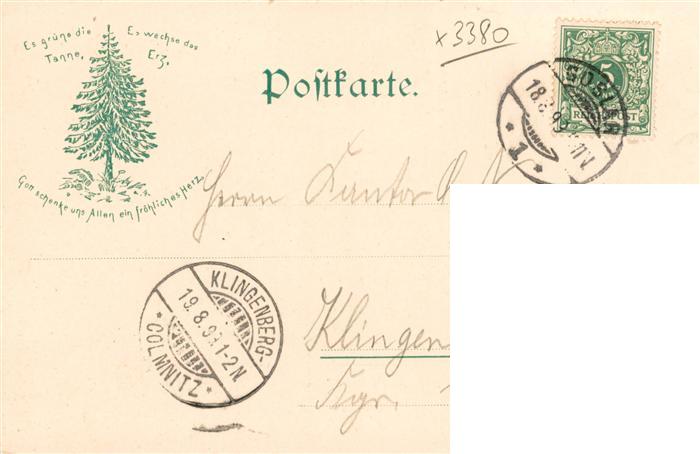 Es grüne die Tanne,
Es wachse das Erz,
Gott schenke uns Allen ein fröhliches Herz
x3380
Postkarte.
5
REICHSPOST
GOSLAR
18.8.99.
11V.
* 1 *
Herrn Kantor
Klingen
Kgr.
KLINGENBERG-
19.8.99.1-2N
*COLMNITZ*